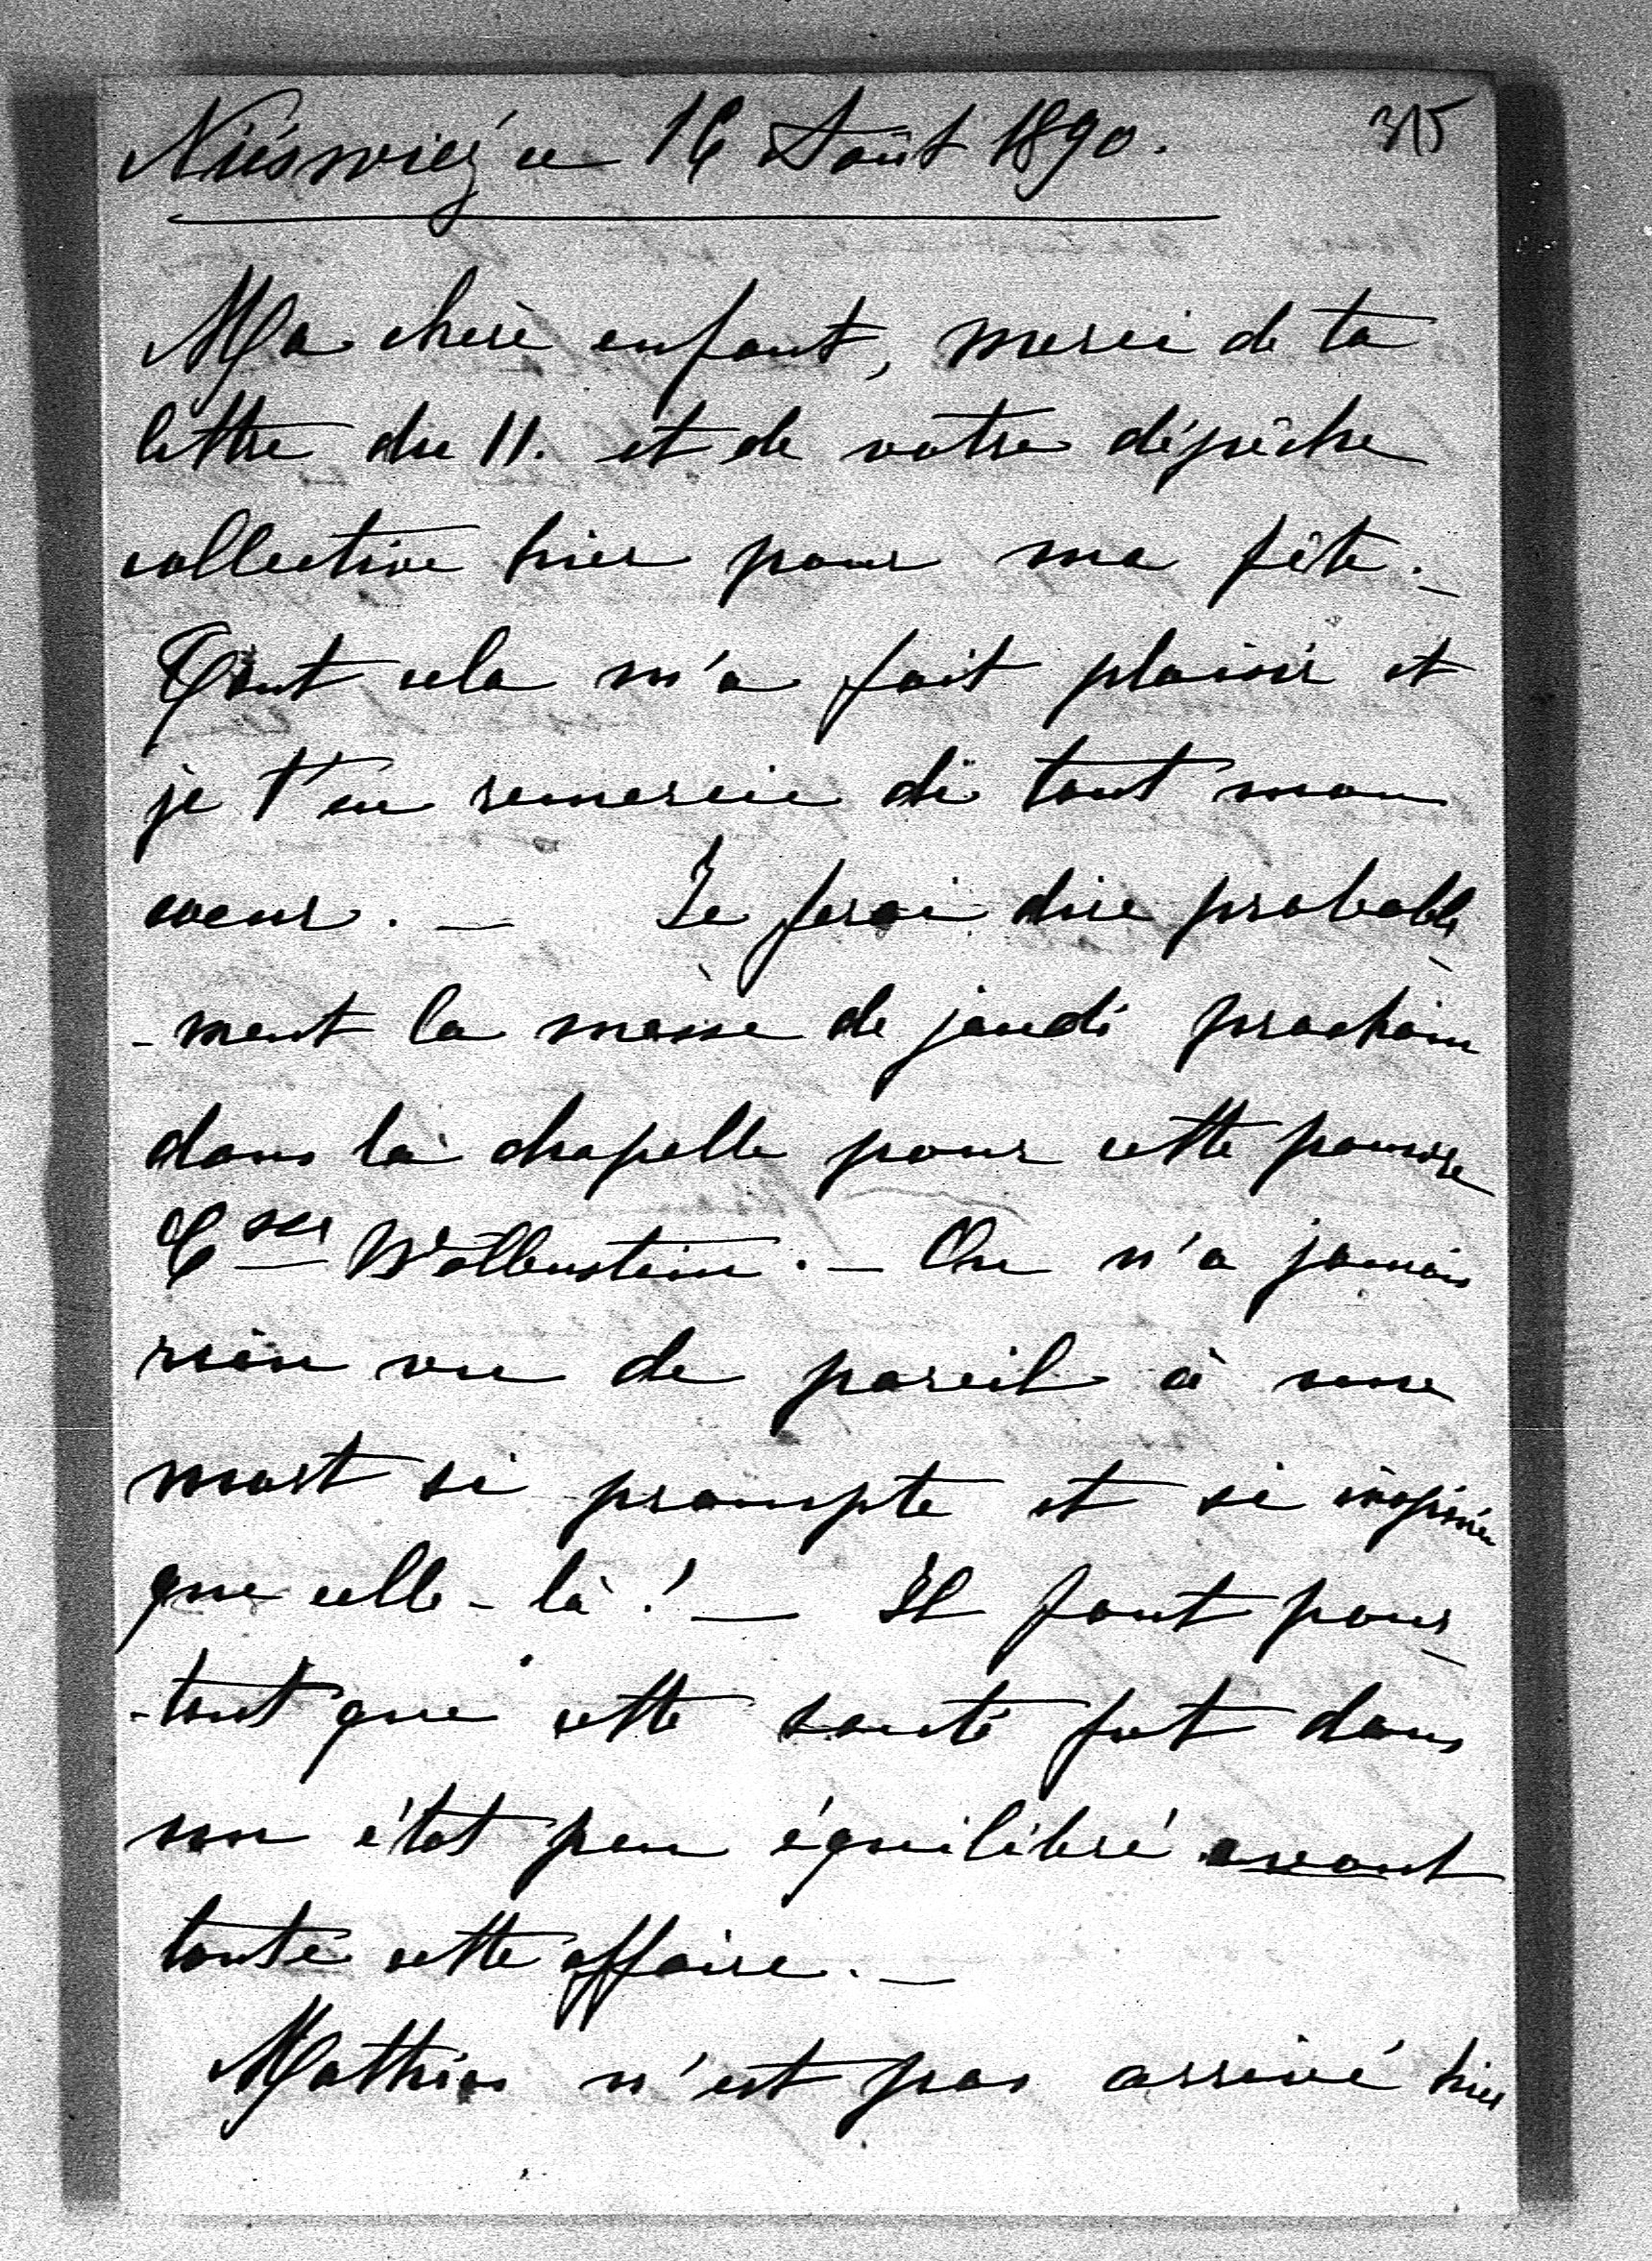 Nieśwież ce 16 Août 1890. 315
Ma chère enfant, merci de ta
lettre du 11. et de votre dépêche
collective hier pour ma fête. _
Tout cela m'a fait plaisir et
je t'en remercie de tout mon
coeur. _ Je ferai dire probable_
-ment la messe de jeudi prochain
dans la chapelle pour cette pauvre
Csse Wallenstein. _ On n'a jamais
rien vu de pareil à une
mort si prompte et si inopinée
que celle-là! _ Il faut pour_
-tant que cette santé fut dans
un état peu équilibré avant
toute cette affaire. _
Mathias n'est pas arrivé hier